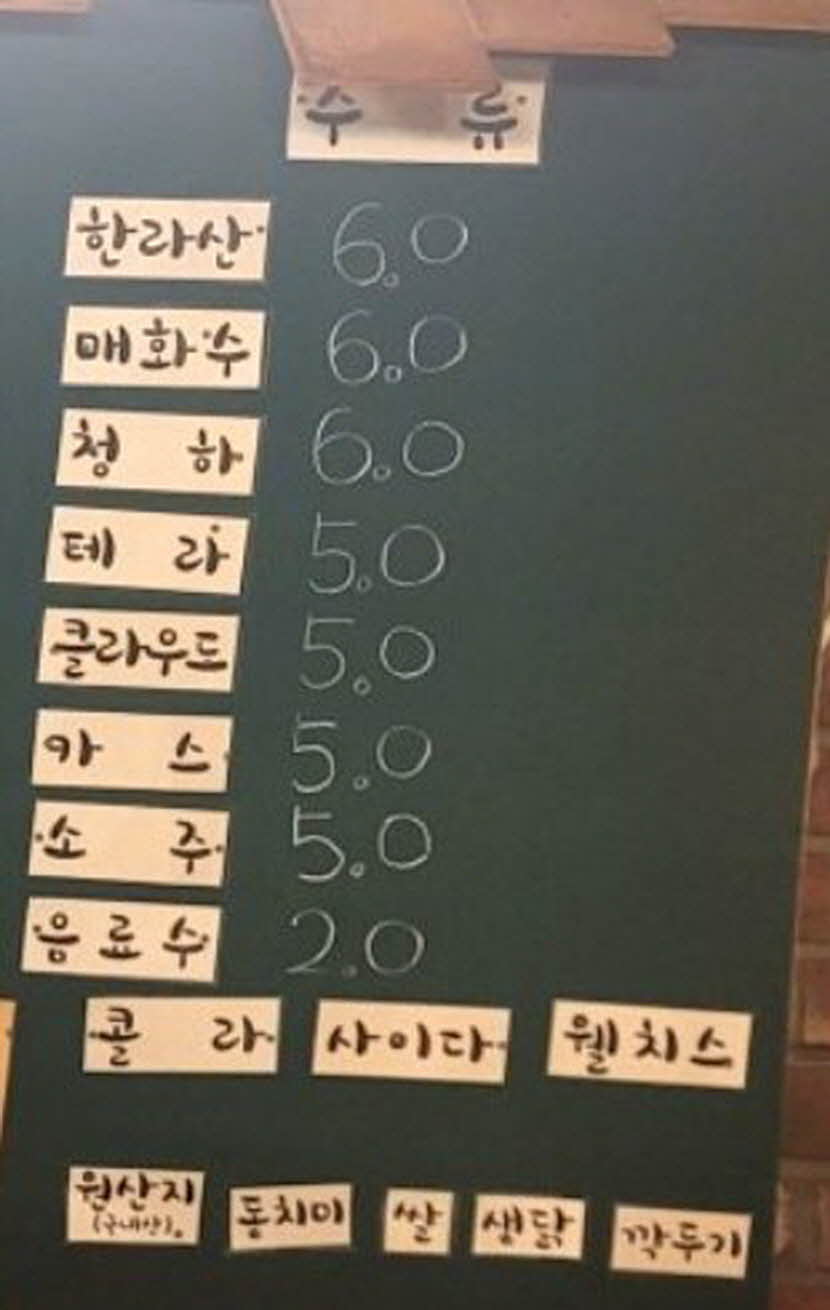 주 류
한라산 6.0
매화수 6.0
청 하 6.0
테 라 5.0
클라우드 5.0
카 스 5.0
소 주 5.0
음료수 2.0
콜 라 사이다 웰치스
원산지 동치미 쌀 생닭 깍두기
(국내산)